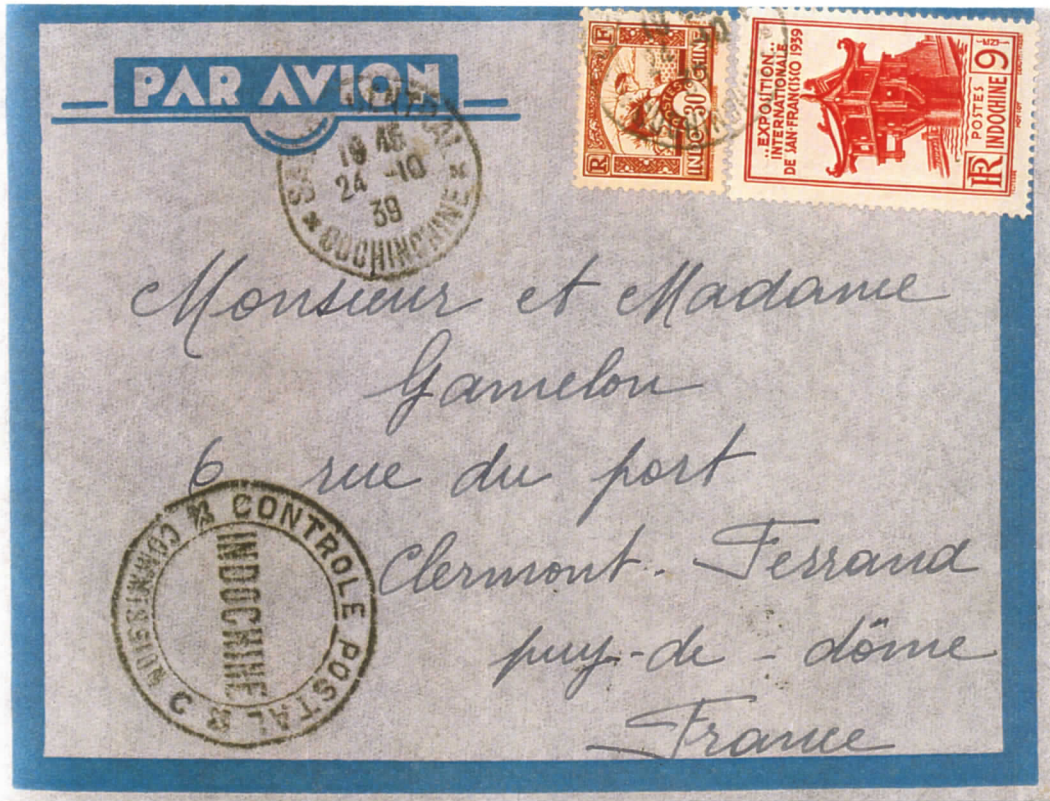 PAR AVION
CENTRAL
19 45
24 -10
39
COCHINCHINE
R F
POSTES
INDOCHINE
..EXPOSITION..
INTERNATIONALE
DE SAN-FRANCISCO 1939
POSTES
INDOCHINE
9
RF
Monsieur et Madame
Gamelon
6 rue du port
Clermont-Ferrand
puy-de-dôme
France
CONTROLE POSTAL
INDOCHINE
COMMISSION C